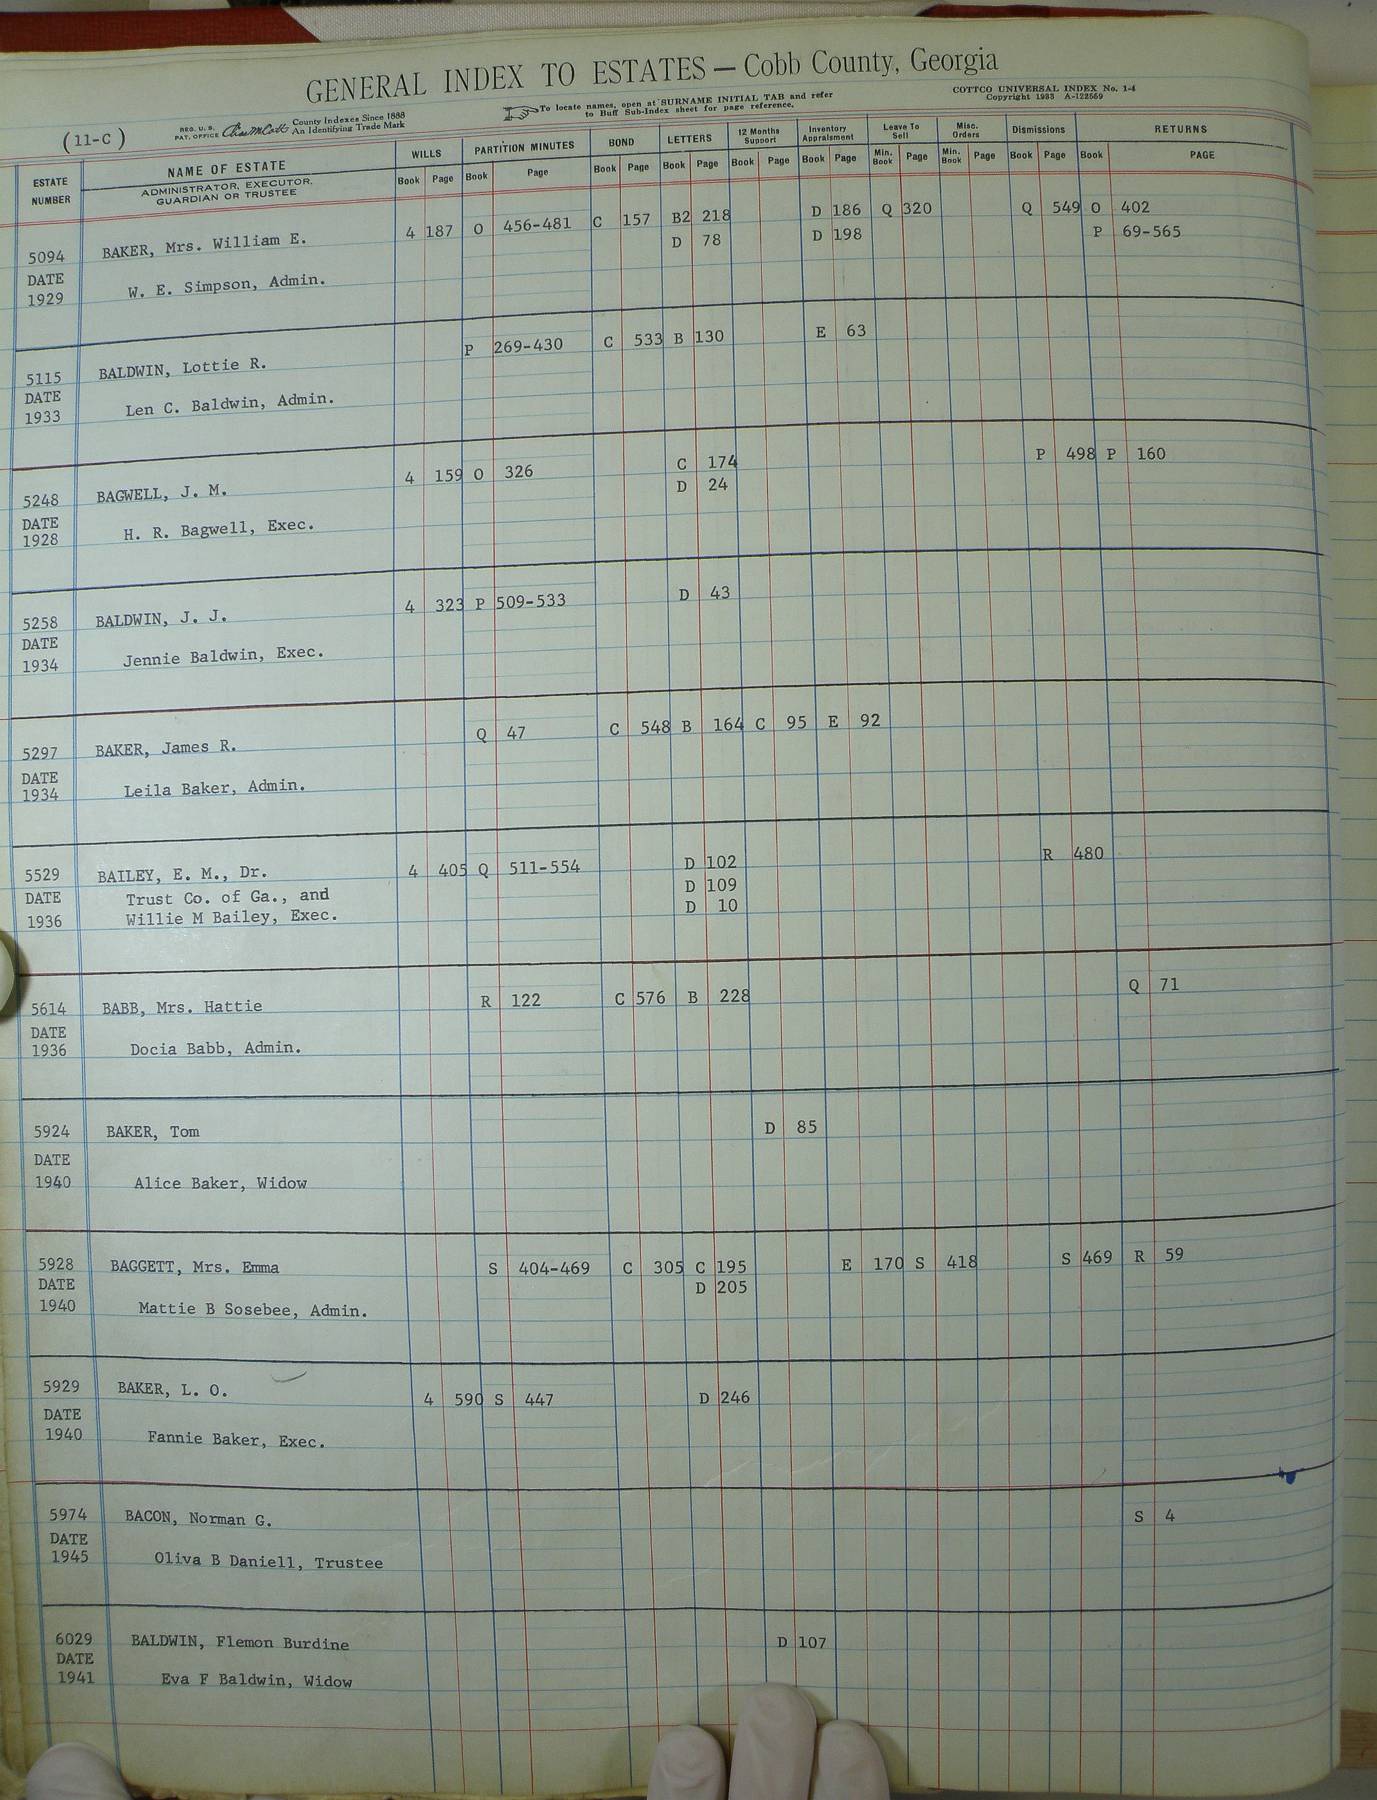 GENERAL INDEX TO ESTATES — Cobb County, Georgia
(11-C)
REG. U. S. PAT. OFFICE County Indexes Since 1888 An Identifying Trade Mark
To locate names, open at SURNAME INITIAL TAB and refer to Buff Sub-Index sheet for page reference.
COTTCO UNIVERSAL INDEX No. 1-4
Copyright 1933 A-122569
ESTATE NUMBER NAME OF ESTATE WILLS PARTITION MINUTES BOND LETTERS 12 Months Support Inventory Appraisment Leave To Sell Misc. Orders Dismissions RETURNS
ADMINISTRATOR, EXECUTOR, GUARDIAN OR TRUSTEE Book Page Book Page Book Page Book Page Book Page Book Page Min. Book Page Min. Book Page Book Page Book PAGE
5094 BAKER, Mrs. William E. 4 187 O 456-481 C 157 B2 218 D 186 Q 320 Q 549 O 402
D 78 D 198 P 69-565
DATE
1929 W. E. Simpson, Admin.
5115 BALDWIN, Lottie R. P 269-430 C 533 B 130 E 63
DATE
1933 Len C. Baldwin, Admin.
5248 BAGWELL, J. M. 4 159 O 326 C 174 P 498 P 160
D 24
DATE
1928 H. R. Bagwell, Exec.
5258 BALDWIN, J. J. 4 323 P 509-533 D 43
DATE
1934 Jennie Baldwin, Exec.
5297 BAKER, James R. Q 47 C 548 B 164 C 95 E 92
DATE
1934 Leila Baker, Admin.
5529 BAILEY, E. M., Dr. 4 405 Q 511-554 D 102 R 480
DATE Trust Co. of Ga., and D 109
1936 Willie M Bailey, Exec. D 10
5614 BABB, Mrs. Hattie R 122 C 576 B 228 Q 71
DATE
1936 Docia Babb, Admin.
5924 BAKER, Tom D 85
DATE
1940 Alice Baker, Widow
5928 BAGGETT, Mrs. Emma S 404-469 C 305 C 195 E 170 S 418 S 469 R 59
DATE D 205
1940 Mattie B Sosebee, Admin.
5929 BAKER, L. O. 4 590 S 447 D 246
DATE
1940 Fannie Baker, Exec.
5974 BACON, Norman G. S 4
DATE
1945 Oliva B Daniell, Trustee
6029 BALDWIN, Flemon Burdine D 107
DATE
1941 Eva F Baldwin, Widow